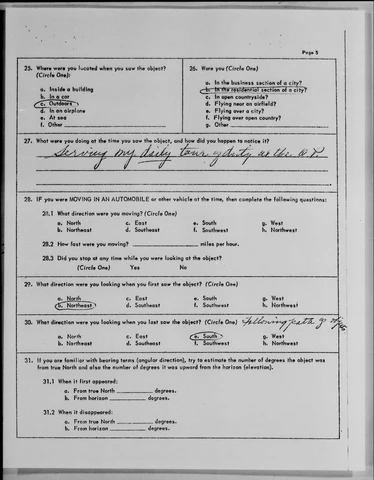 Page 5
25. Where were you located when you saw the object?
(Circle One):
a. Inside a building
b. In a car
c. Outdoors
d. In an airplane
e. At sea
f. Other
26. Were you (Circle One)
a. In the business section of a city?
b. In the residential section of a city?
c. In open countryside?
d. Flying near an airfield?
e. Flying over a city?
f. Flying over open country?
g. Other
27. What were you doing at the time you saw the object, and how did you happen to notice it?
Serving my daily tour of duty as
28. IF you were MOVING IN AN AUTOMOBILE or other vehicle at the time, then complete the following questions:
28.1 What direction were you moving? (Circle One)
a. North c. East e. South g. West
b. Northeast d. Southeast f. Southwest h. Northwest
28.2 How fast were you moving? miles per hour.
28.3 Did you stop at any time while you were looking at the object?
(Circle One) Yes No
29. What direction were you looking when you first saw the object? (Circle One)
a. North c. East e. South g. West
b. Northeast d. Southeast f. Southwest h. Northwest
30. What direction were you looking when you last saw the object? (Circle One) following path of
a. North c. East e. South g. West
b. Northeast d. Southeast f. Southwest h. Northwest
31. If you are familiar with bearing terms (angular direction), try to estimate the number of degrees the object was
from true North and also the number of degrees it was upward from the horizon (elevation).
31.1 When it first appeared:
a. From true North degrees.
b. From horizon degrees.
31.2 When it disappeared:
a. From true North degrees.
b. From horizon degrees.